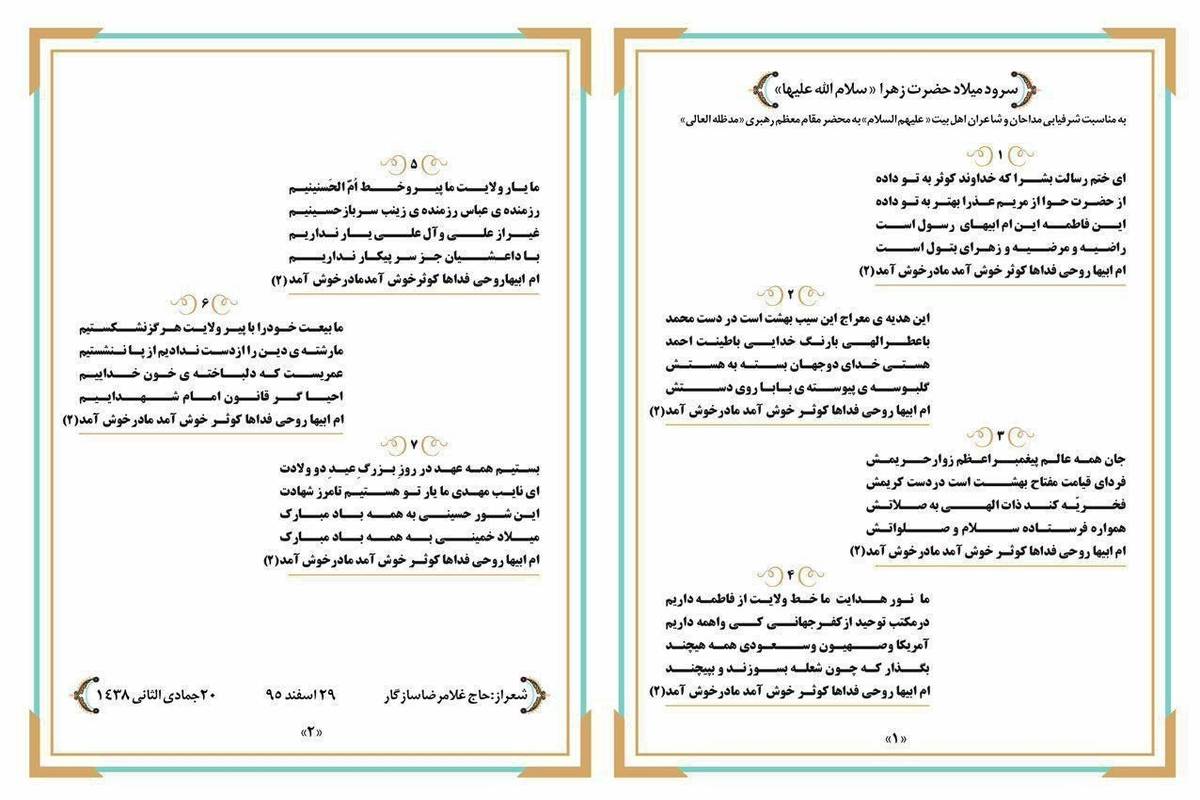 سرود میلاد حضرت زهرا «سلام الله علیها»
به مناسبت شرفیابی مداحان و شاعران اهل بیت «علیهم السلام» به محضر مقام معظم رهبری «مدظله العالی»
۱
ای ختم رسالت بشرا که خداوند کوثر به تو داده
از حضرت حوا از مریم عذرا بهتر به تو داده
این فاطمه این ام ابیهای رسول است
راضیه و مرضیه و زهرای بتول است
ام ابیها روحی فداها کوثر خوش آمد مادر خوش آمد (۲)
۲
این هدیه ی معراج این سیب بهشت است در دست محمد
با عطر الهی با رنگ خدایی با طینت احمد
هستی خدای دو جهان بسته به هستش
گلبوسه ی پیوسته ی بابا روی دستش
ام ابیها روحی فداها کوثر خوش آمد مادر خوش آمد (۲)
۳
جان همه عالم پیغمبر اعظم زوار حریمش
فردای قیامت مفتاح بهشت است در دست کریمش
فخریّه کند ذات الهی به صلاتش
همواره فرستاده سلام و صلواتش
ام ابیها روحی فداها کوثر خوش آمد مادر خوش آمد (۲)
۴
ما نور هدایت ما خط ولایت از فاطمه داریم
در مکتب توحید از کفر جهانی کی واهمه داریم
آمریکا و صهیون و سعودی همه هیچند
بگذار که چون شعله بسوزند و بپیچند
ام ابیها روحی فداها کوثر خوش آمد مادر خوش آمد (۲)
«۱»
۵
ما یار ولایت ما پیرو خط اُمّ الحَسنینیم
رزمنده ی عباس رزمنده ی زینب سرباز حسینیم
غیر از علی و آل علی یار نداریم
با داعشیان جز سر پیکار نداریم
ام ابیها روحی فداها کوثر خوش آمد مادر خوش آمد (۲)
۶
ما بیعت خود را با پیر ولایت هرگز نشکستیم
ما رشته ی دین را از دست ندادیم از پا ننشستیم
عمریست که دلباخته ی خون خداییم
احیا گر قانون امام شهداییم
ام ابیها روحی فداها کوثر خوش آمد مادر خوش آمد (۲)
۷
بستیم همه عهد در روزِ بزرگِ عیدِ دو ولادت
ای نایب مهدی ما یار تو هستیم تا مرز شهادت
این شور حسینی به همه باد مبارک
میلاد خمینی به همه باد مبارک
ام ابیها روحی فداها کوثر خوش آمد مادر خوش آمد (۲)
شعر از: حاج غلامرضا سازگار ۲۹ اسفند ۹۵ ۲۰ جمادی الثانی ۱۴۳۸
«۲»